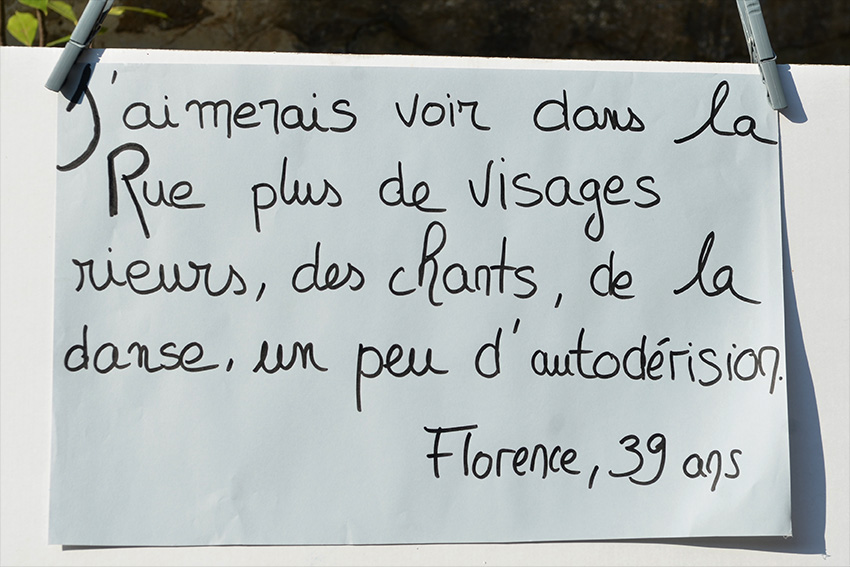 J'aimerais voir dans la
Rue plus de visages
rieurs, des chants, de la
danse, un peu d'autodérision.
Florence, 39 ans